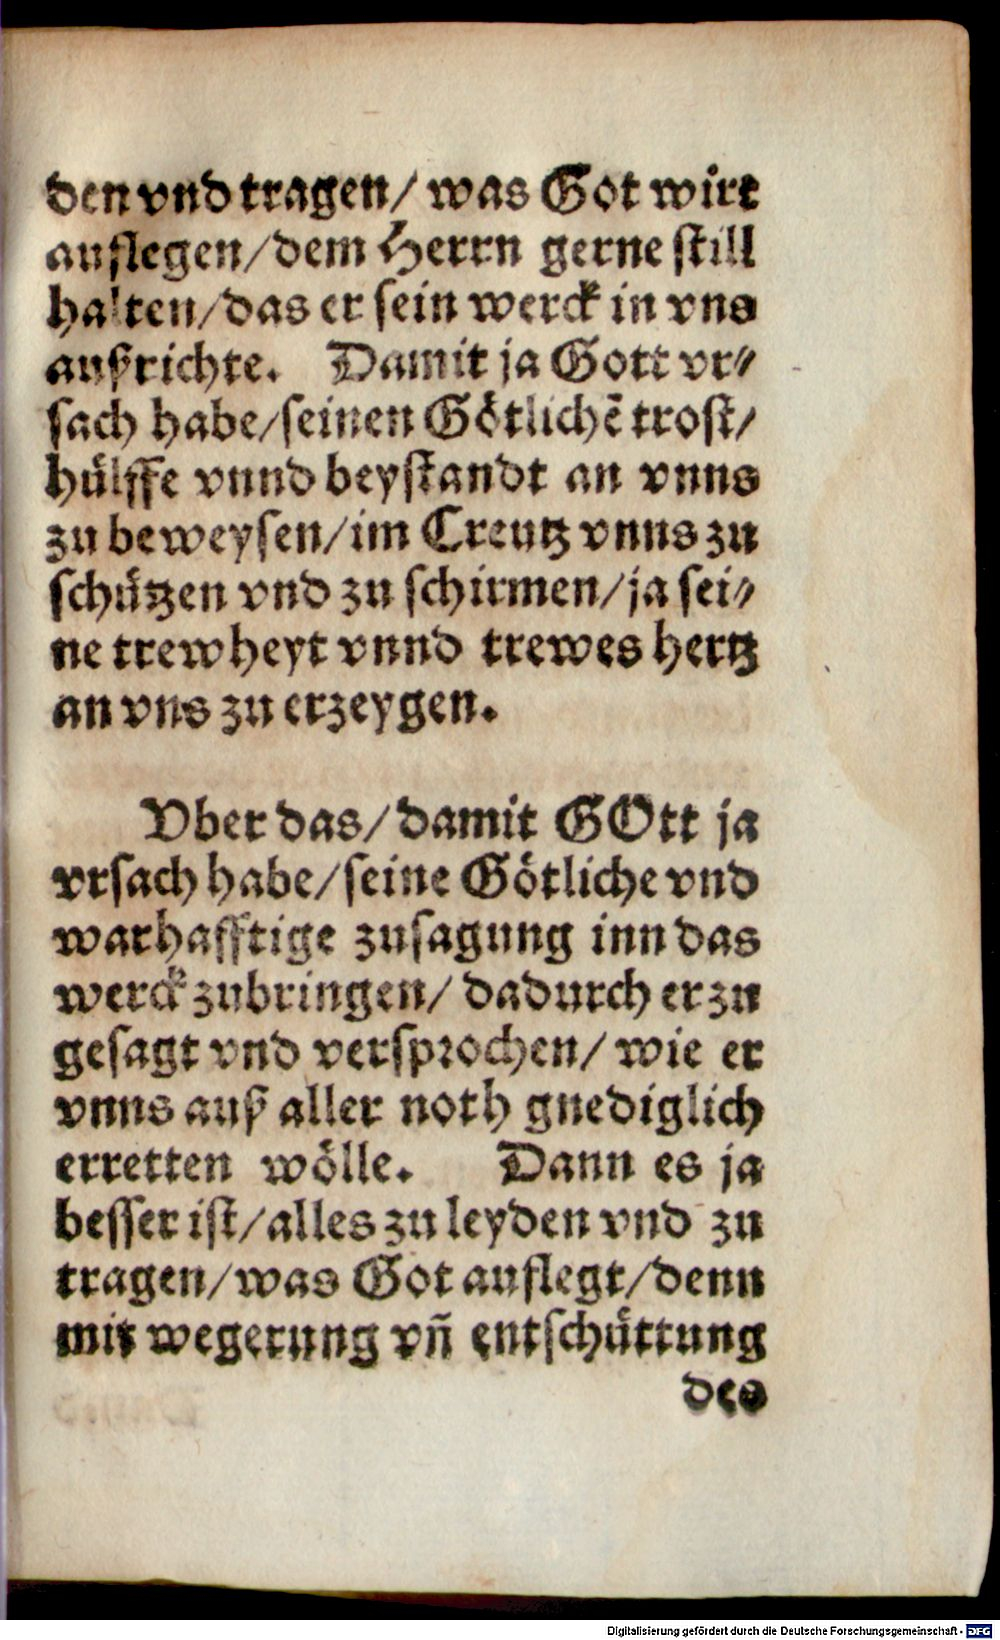 den vnd tragen/ was Got wirt
auflegen/dem Herrn gerne still
halten/das er sein werck in vns
außrichte. Damit ja Gott vr⸗
sach habe/seinen Götlichẽ trost/
hülffe vnnd beystandt an vnns
zu beweysen/im Creutz vnns zu
schützen vnd zu schirmen/ja sei⸗
ne trewheyt vnnd trewes hertz
an vns zu erzeygen.
Vber das/damit GOtt ja
vrsach habe/seine Götliche vnd
warhafftige zusagung inn das
werck zubringen/ dadurch er zu
gesagt vnd versprochen/ wie er
vnns auß aller noth gnediglich
erretten wölle. Dann es ja
besser ist/alles zu leyden vnd zu
tragen/was Got auflegt/denn
mit wegerung vñ entschüttung
des
Digitalisierung gefördert durch die Deutsche Forschungsgemeinschaft - DFG